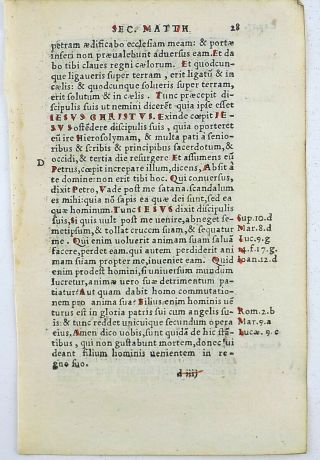 SEC. MATTH. 28
petram ædificabo ecclesiam meam: & portæ
inferi non præualebunt aduersus eam. Et da
bo tibi claues regni cælorum. Et quodcun-
que ligaueris super terram, erit ligatũ & in
cælis: & quodcunque solueris super terram,
erit solutum & in cælis. Tunc præcepit di-
scipulis suis ut nemini dicerēt quia ipse esset
IESVS CHRISTVS. Exinde cœpit IE-
SVS ostēdere discipulis suis, quia oporteret
eũ ire Hierosolymam, & multa pati à senio-
ribus & scribis & principibus sacerdotum, &
D occidi, & tertia die resurgere Et assumens eũ
Petrus, cœpit increpare illum, dicens, Absit à
te domine: non erit tibi hoc. Qui conuersus,
dixit Petro, Vade post me satana. scandalum
es mihi: quia nō sapis ea quæ dei sunt, sed ea
quæ hominum. Tunc IESVS dixit discipulis
suis, Si quis uult post me uenire, abneget se-
metipsum, & tollat crucem suam, & sequatur Sup.10.d
me. Qui enim uoluerit animam suam saluã Mar.8.d
facere, perdet eam. qui autem perdiderit ani Luc.9.g
mam suam propter me, inueniet eam. Quid & f.17.g.
enim prodest homini, si uniuersum mundum Ioan.12.d
lucretur, animæ uero suæ detrimentum pa-
tiatur? Aut quam dabit homo commutatio-
nem pro anima sua? Filius enim hominis uē
turus est in gloria patris sui cum angelis su-
is: & tunc reddet unicuique secundum opera Rom.2.b
eius. Amen dico uobis, sunt quidã de hic stã Mar.9.a
tibus, qui non gustabunt mortem, donec ui Lucæ.9.c
deant filium hominis uenientem in re-
gno suo.
d iiij